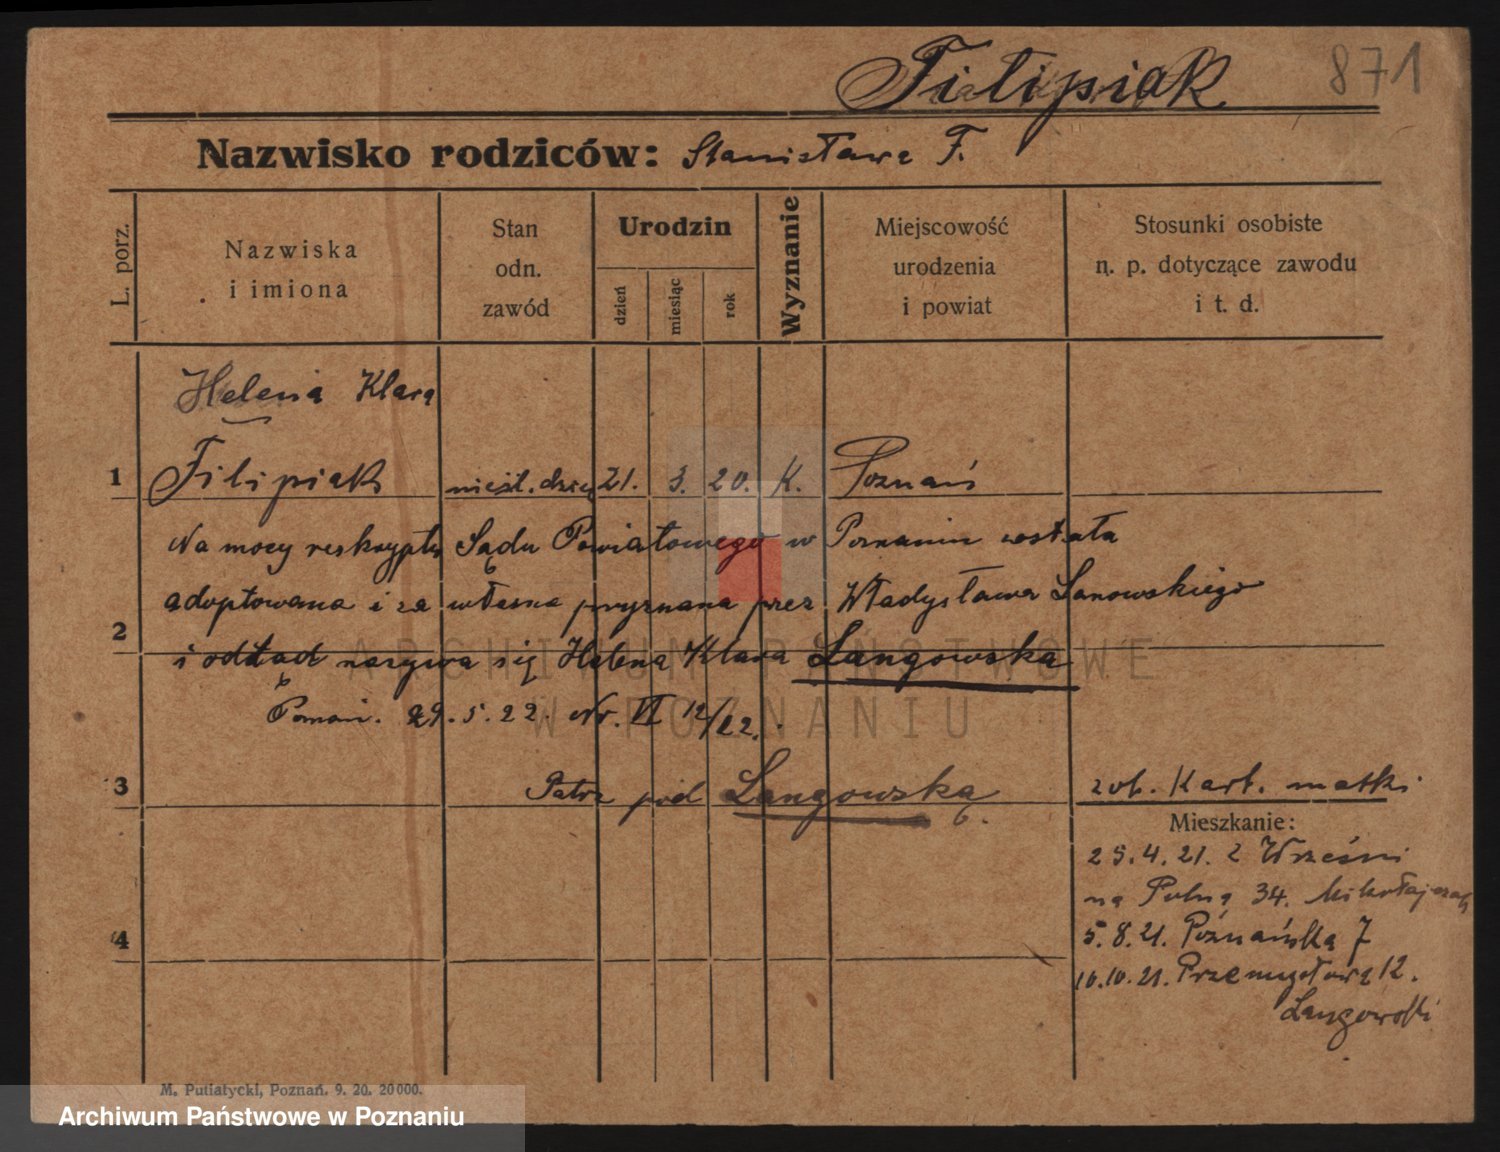 Filipiak 871
Nazwisko rodziców: Stanisława F.
L. porz.
Nazwiska
i imiona
Stan
odn.
zawód
Urodzin
dzień
miesiąc
rok
Wyznanie
Miejscowość
urodzenia
i powiat
Stosunki osobiste
n. p. dotyczące zawodu
i t. d.
Helena Klara
1 Filipiak nieśl. dziec 21. 3. 20. K. Poznań
Na mocy reskryptu Sądu Powiatowego w Poznaniu została
adoptowana i za własna przyznana przez Władysława Lanowskiego
2
i odtąd nazywa się Helena Klara Langowska
Poznań. 29.5.22. Nr. VI 12/22.
3 Patrz pod Langowską. zob. Kart. matki
Mieszkanie:
25.4.21. z Wrześni
na Polną 34. Mikołajczak
4 5.8.21. Poznańska 7
10.10.21. Przemysłowa 12.
Langowski
M. Putiatycki, Poznań. 9. 20. 20000.
ARCHIWUM PAŃSTWOWE
W POZNANIU
Archiwum Państwowe w Poznaniu